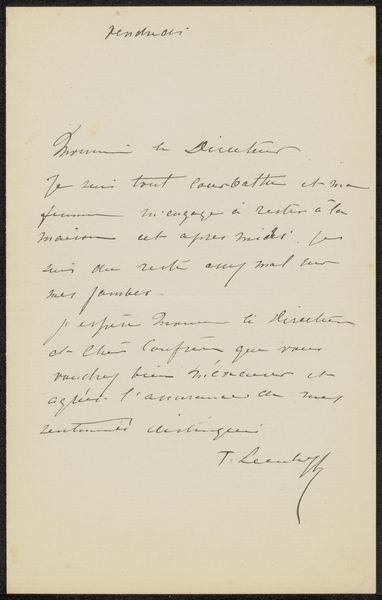 Vendredi
Monsieur le Directeur
Je suis tout courbattu et ma
femme m'engage à rester à la
maison cet après midi. Je
suis du reste assez mal sur
mes jambes.
J'espère Monsieur le Directeur
et Cher Confrère que vous
voudrez bien m'excuser et
agréer l'assurance de mes
sentiments distingués
F. Leenhoff